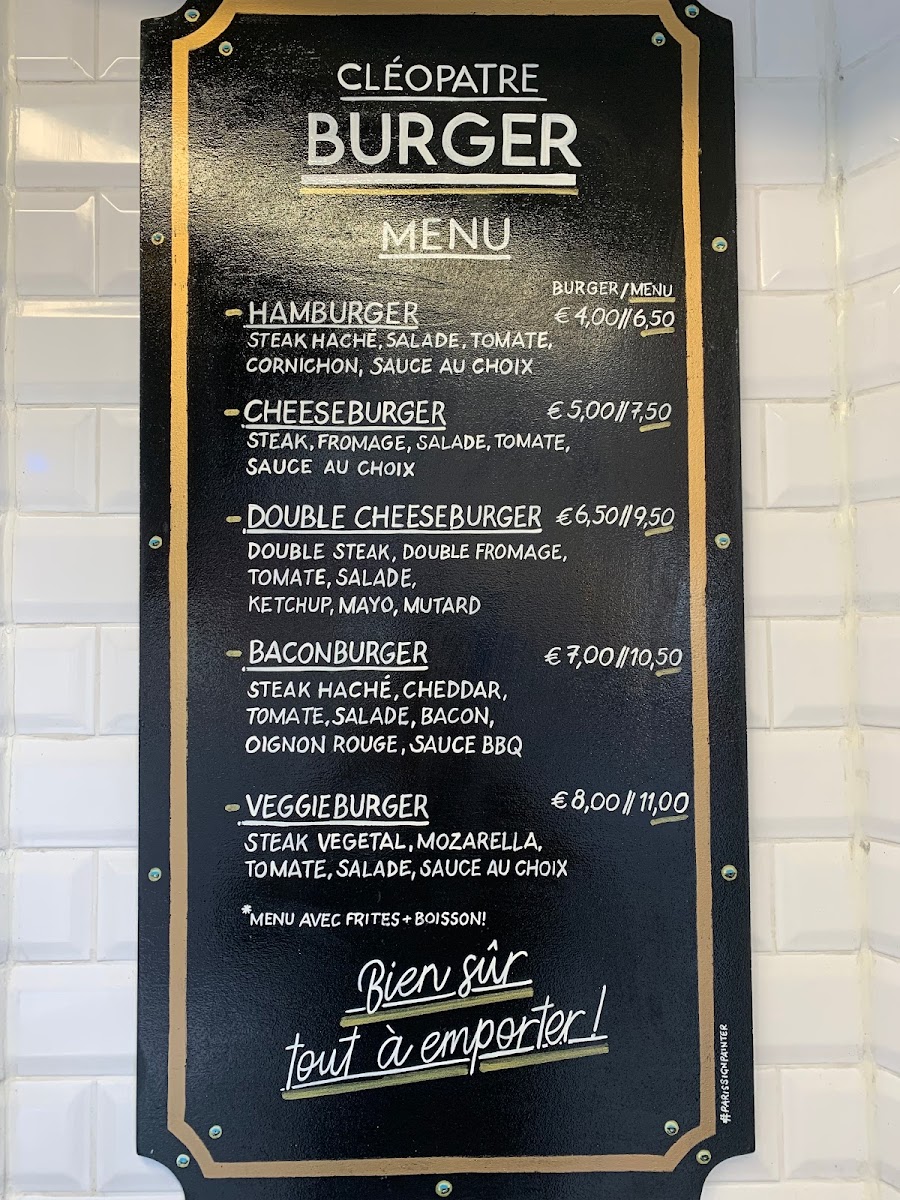 CLÉOPATRE
BURGER
MENU
BURGER/MENU
- HAMBURGER € 4,00//6,50
STEAK HACHÉ, SALADE, TOMATE,
CORNICHON, SAUCE AU CHOIX
- CHEESEBURGER € 5,00//7,50
STEAK, FROMAGE, SALADE, TOMATE,
SAUCE AU CHOIX
- DOUBLE CHEESEBURGER €6,50//9,50
DOUBLE STEAK, DOUBLE FROMAGE,
TOMATE, SALADE,
KETCHUP, MAYO, MUTARD
- BACONBURGER € 7,00//10,50
STEAK HACHÉ, CHEDDAR,
TOMATE, SALADE, BACON,
OIGNON ROUGE, SAUCE BBQ
- VEGGIEBURGER € 8,00//11,00
STEAK VEGETAL, MOZARELLA,
TOMATE, SALADE, SAUCE AU CHOIX
*MENU AVEC FRITES + BOISSON!
Bien sûr
tout à emporter!
#PARISSIGNPAINTER